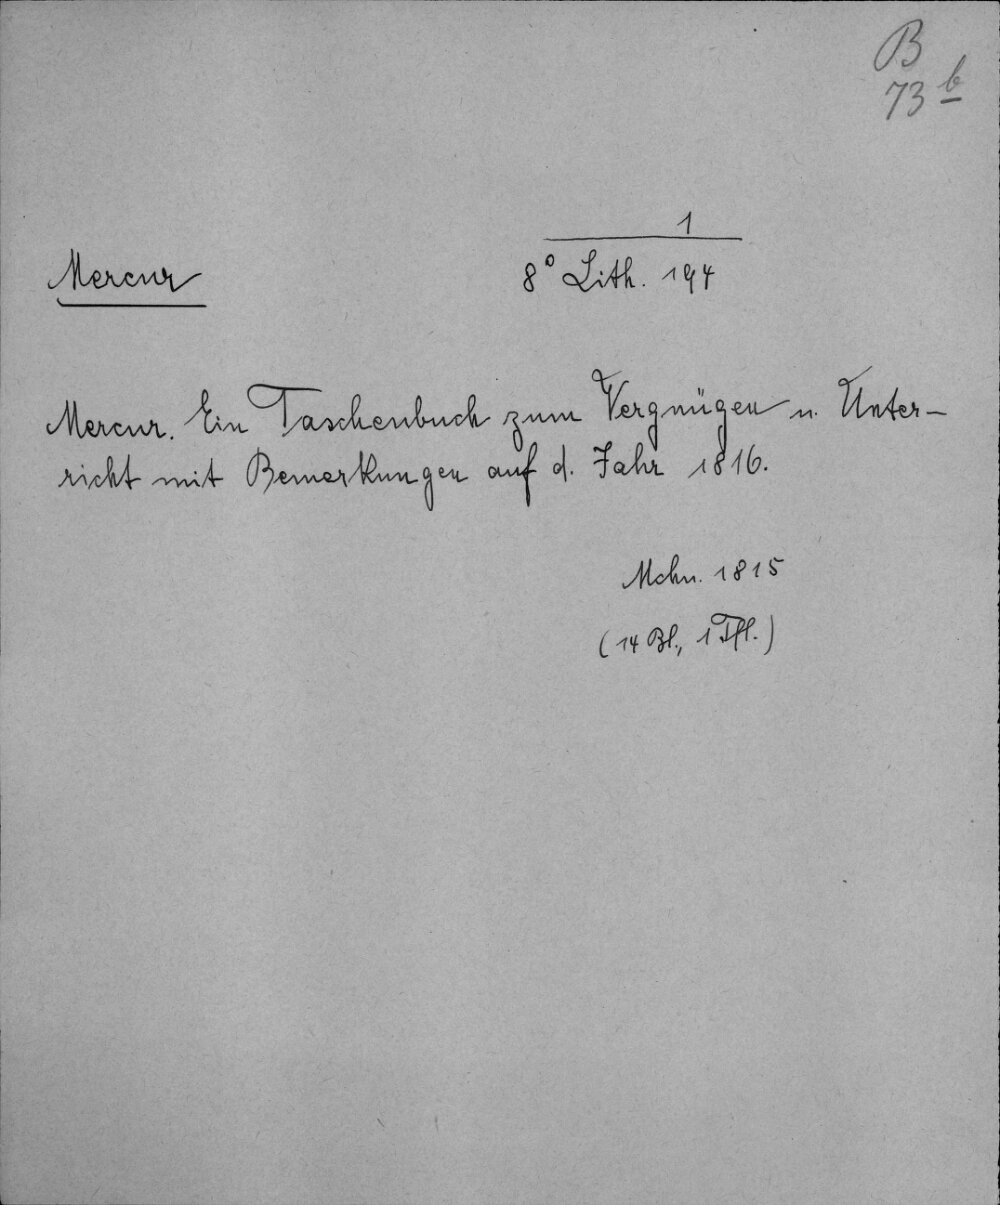 B
73 b
1
Mercur
8° Lith. 194
Mercur. Ein Taschenbuch zum Vergnügen u. Unter-
richt mit Bemerkungen auf d. Jahr 1816.
Mchn. 1815
(14 Bl., 1 Tfl.)